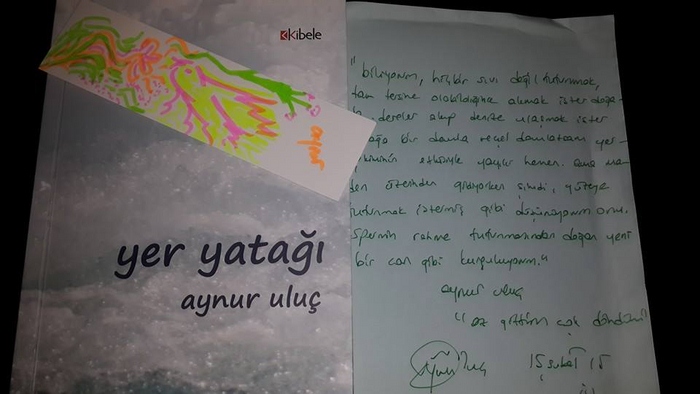 Kibele
aynur
yer yatağı
aynur uluç
"biliyorum, hiçbir sıvı değil tutunmak,
tam tersine olabildiğine akmak ister doğa-
dereler akıp denize ulaşmak ister
bir damla reçel damlatsam yer-
etkisiyle yayılır hemen. ama
den üzerinden gidiyorken şimdi, yüzeye
tutunmak istermiş gibi düşünüyorum onu.
spermin rahme tutunmasından doğan yeni
bir can gibi kurguluyorum."
aynur uluç
"az gittim çok döndüm"
15 şubat 15